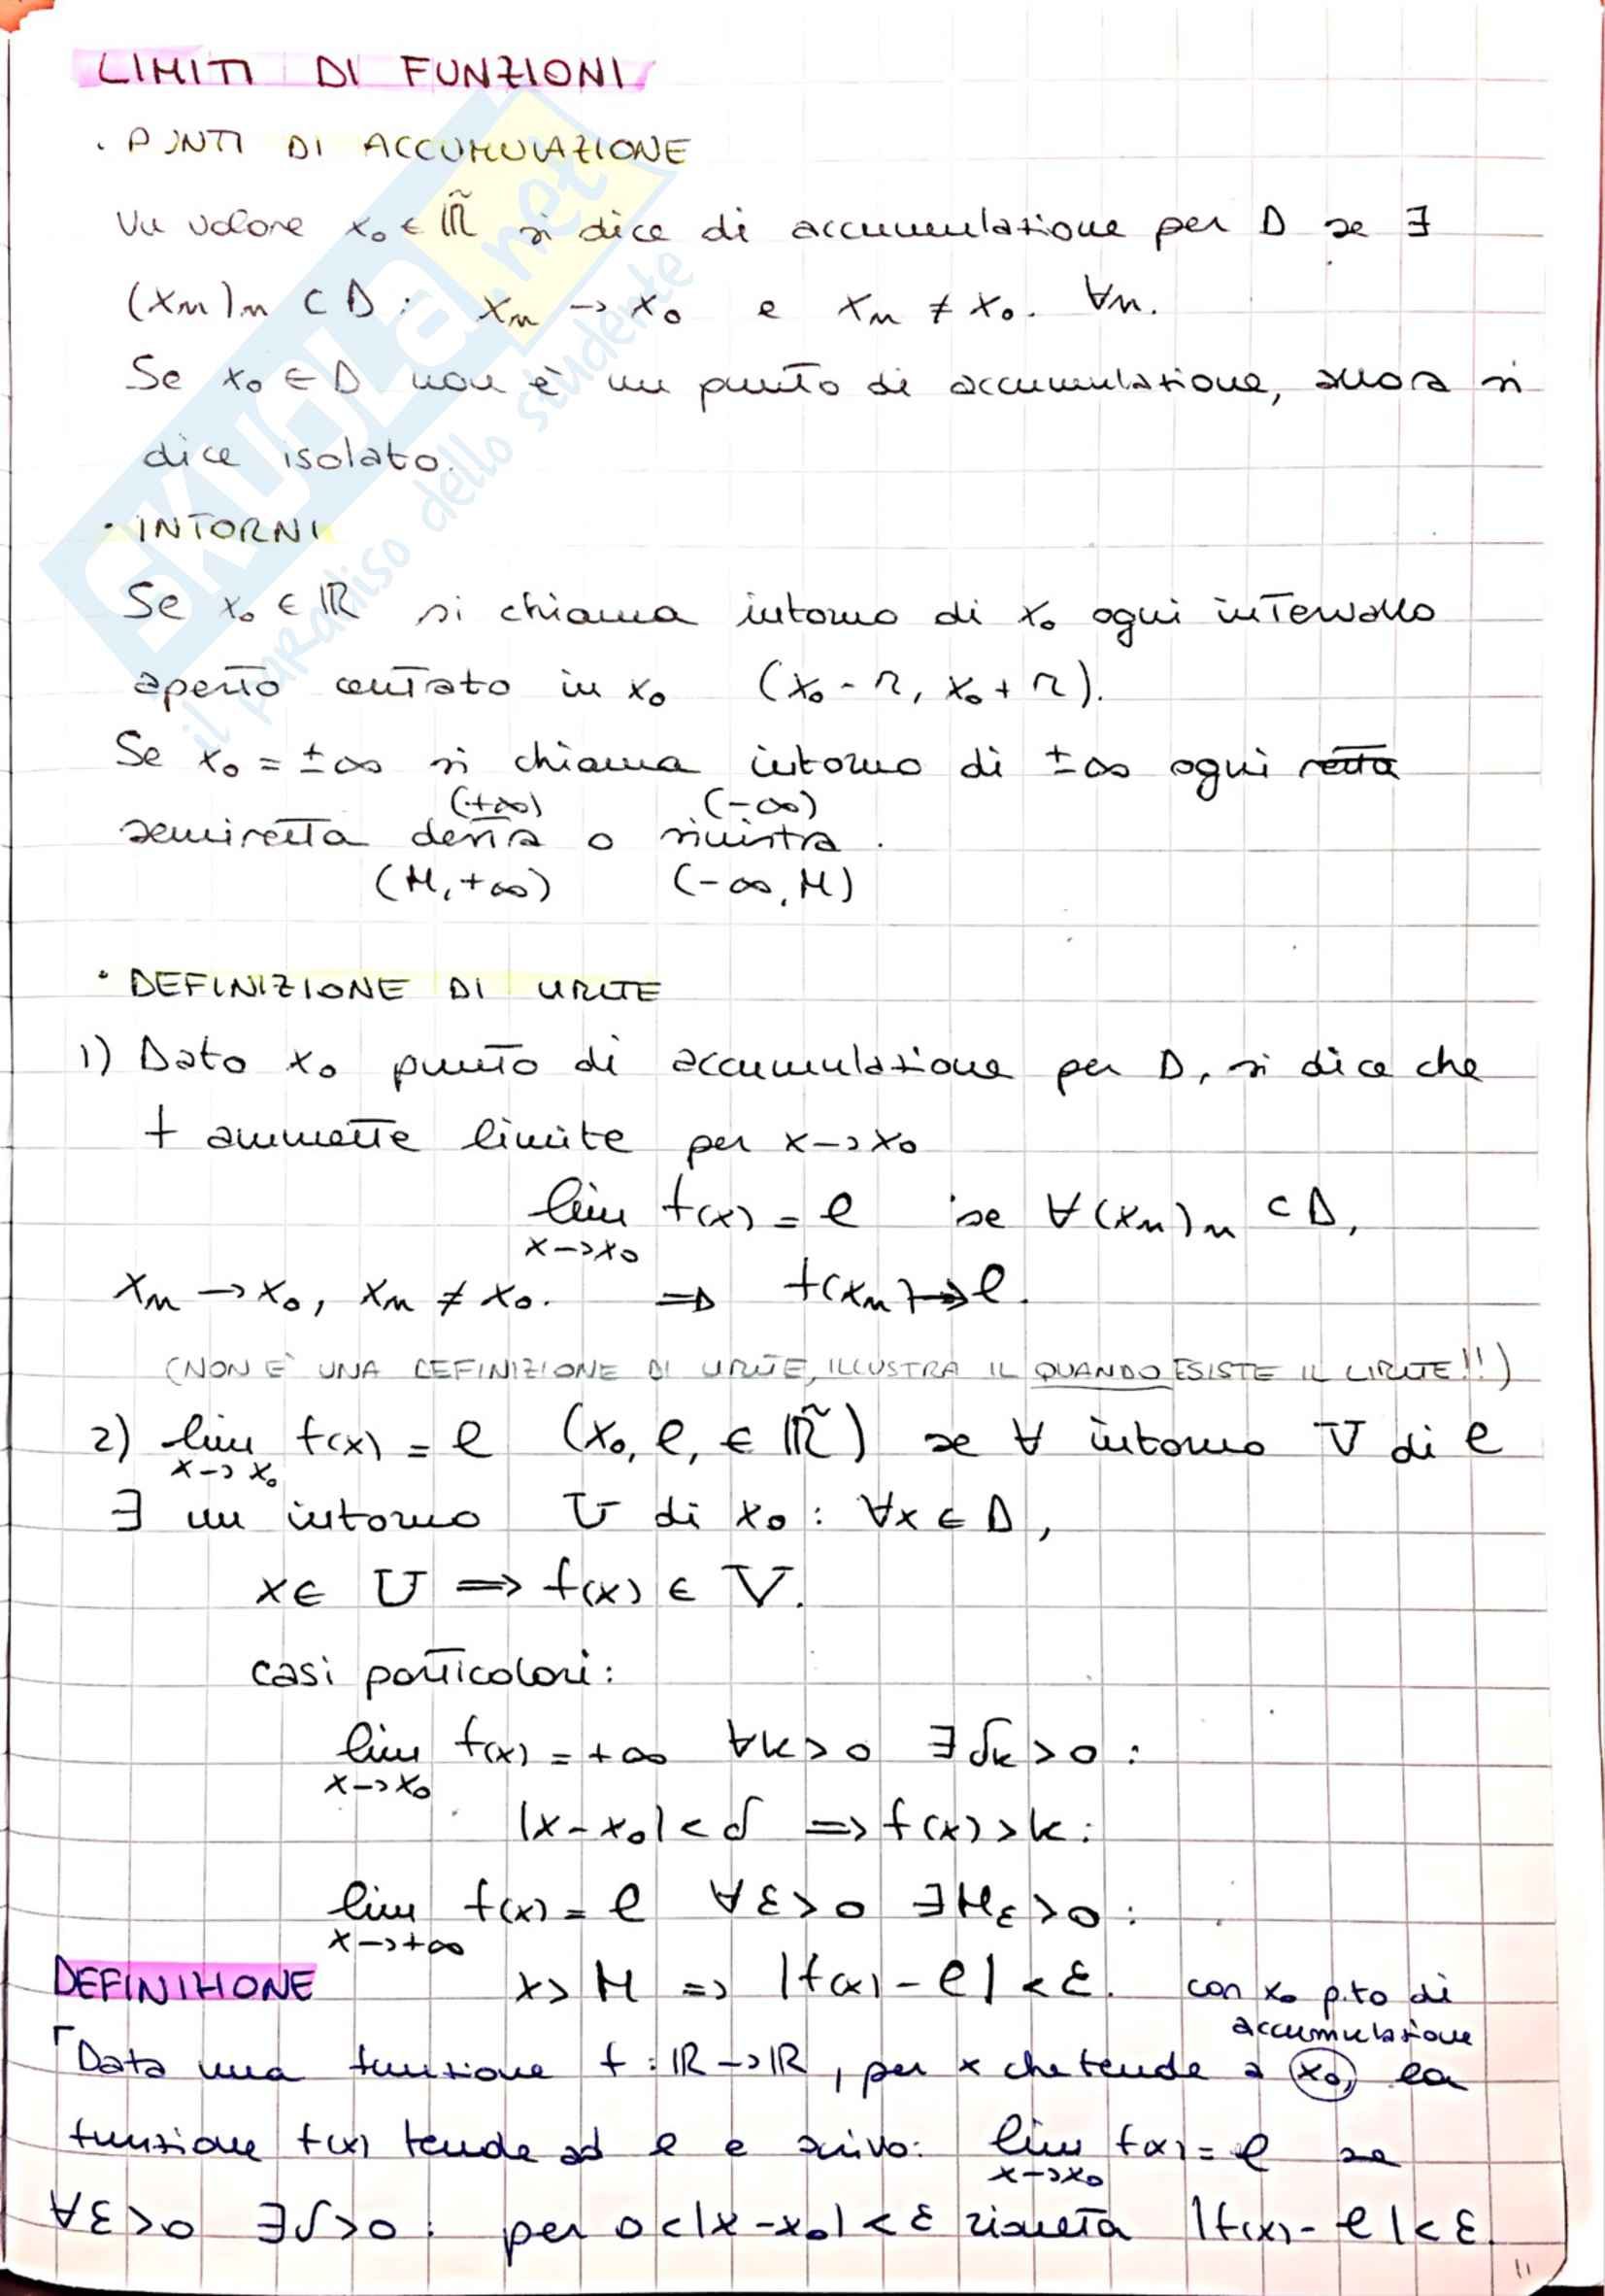 LIMITI DI FUNZIONI
· PUNTI DI ACCUMULAZIONE
Un valore x₀ ∈ ℝ̃ si dice di accumulazione per D se ∃
(xₙ)ₙ ⊂ D : xₙ → x₀ e xₙ ≠ x₀. ∀n.
Se x₀ ∈ D non è un punto di accumulazione, allora si
dice isolato.
· INTORNI
Se x₀ ∈ ℝ si chiama intorno di x₀ ogni intervallo
aperto centrato in x₀ (x₀ - r, x₀ + r).
Se x₀ = ±∞ si chiama intorno di ±∞ ogni retta
(+∞) (-∞)
semiretta destra o sinistra.
(M, +∞) (-∞, M)
· DEFINIZIONE DI LIMITE
1) Dato x₀ punto di accumulazione per D, si dice che
f ammette limite per x → x₀
lim f(x) = l se ∀(xₙ)ₙ ⊂ D,
x → x₀
xₙ → x₀, xₙ ≠ x₀. ⇒ f(xₙ) → l.
(NON E' UNA DEFINIZIONE DI LIMITE, ILLUSTRA IL QUANDO ESISTE IL LIMITE!!)
2) lim f(x) = l (x₀, l, ∈ ℝ̃) se ∀ intorno V di l
x → x₀
∃ un intorno U di x₀ : ∀x ∈ D,
x ∈ U ⇒ f(x) ∈ V.
casi particolari:
lim f(x) = +∞ ∀k > 0 ∃ δₖ > 0 :
x → x₀
|x - x₀| < δ ⇒ f(x) > k :
lim f(x) = l ∀ε > 0 ∃ M_ε > 0 :
x → +∞
DEFINIZIONE x > M ⇒ |f(x) - l| < ε. con x₀ p.to di
accumulazione
Data una funzione f : ℝ → ℝ, per x che tende a x₀, la
funzione f(x) tende ad l e scrivo: lim f(x) = l se
x → x₀
∀ε > 0 ∃ δ > 0 : per 0 < |x - x₀| < ε risulta |f(x) - l| < ε.
11
SKUOLA.net
il paradiso dello studente